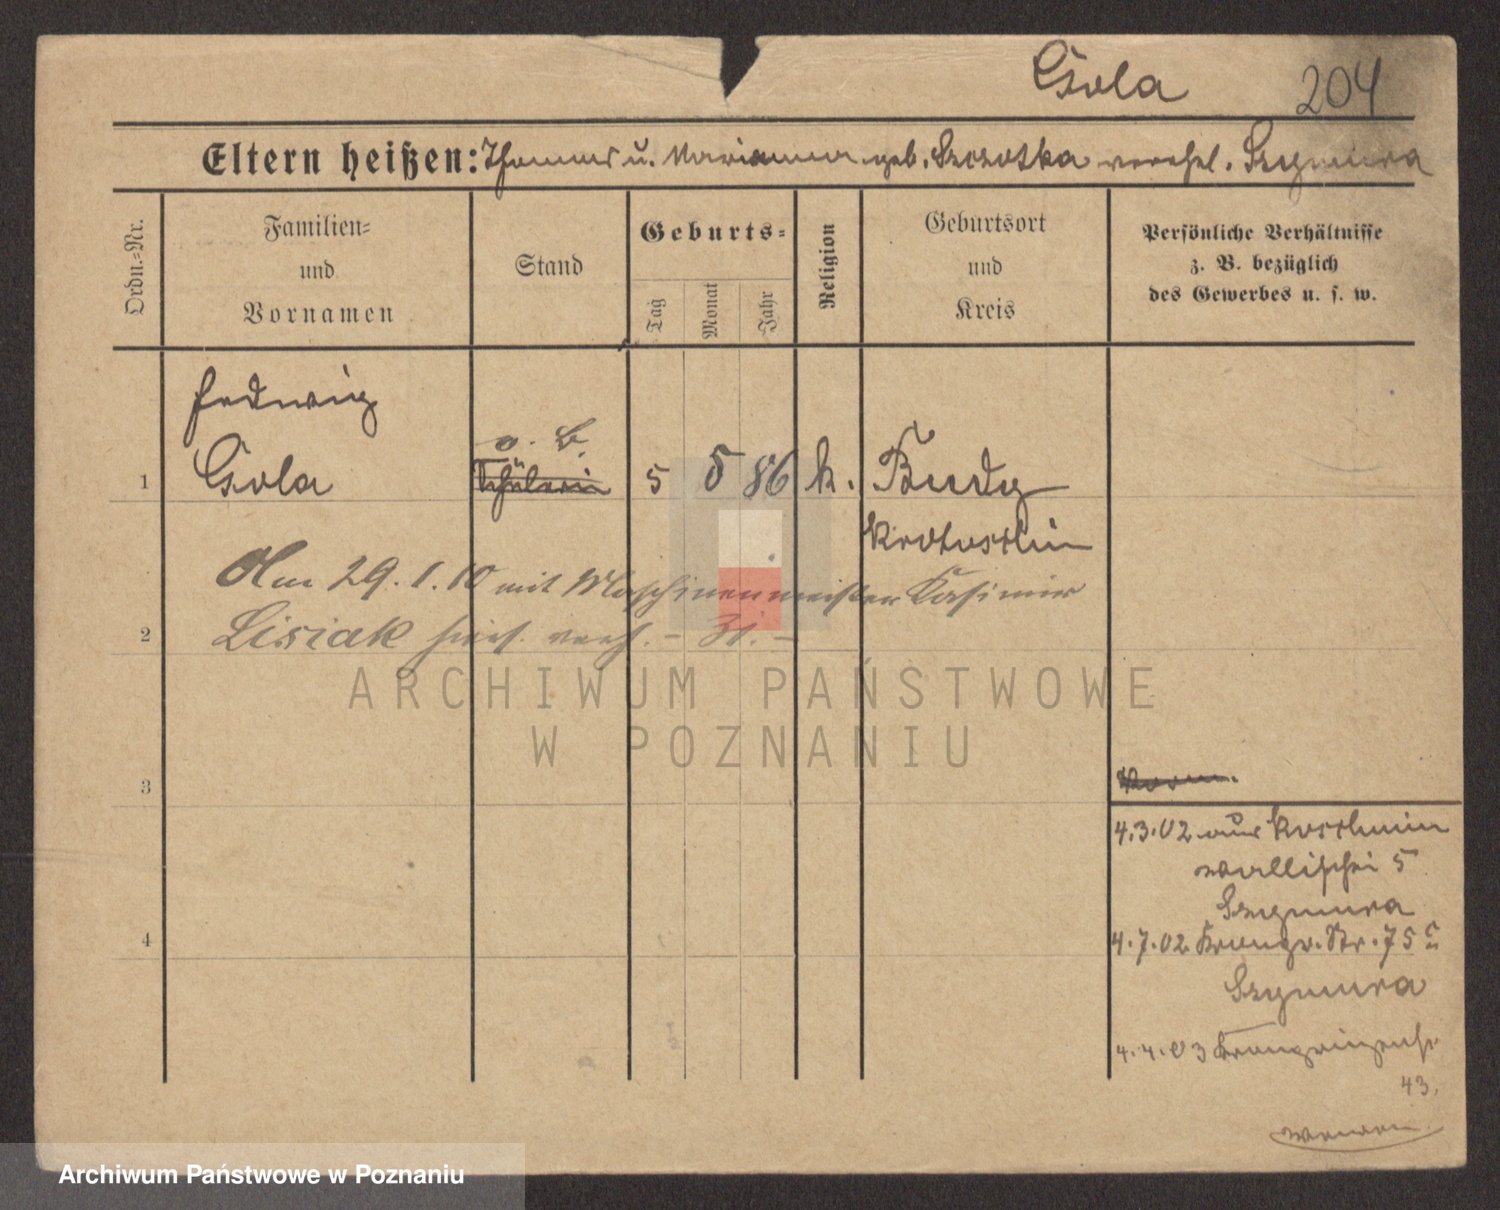 Gola 204
Eltern heißen: Thomas u. Marianna geb. Szczotka verehel. Szymura
Ordn.-Nr.
Familien-
und
Vornamen
Stand
Geburts-
Tag
Monat
Jahr
Religion
Geburtsort
und
Kreis
Persönliche Verhältnisse
z. B. bezüglich
des Gewerbes u. s. w.
Hedwig
o. B.
1 Gola Schülerin 5 5 86 k. Budy
Krotoschin
Am 29.1.10 mit Maschinenmeister Kasimir
2 Lisiak hier verh. – 31. –
3
4.3.02 aus Koschmin
Wallischei 5
Szymura
4
4.7.02 Kronpr. Str. 75
Szymura
4.4.03 Kronprinzenstr.
43.
ARCHIWUM PAŃSTWOWE
W POZNANIU
Archiwum Państwowe w Poznaniu